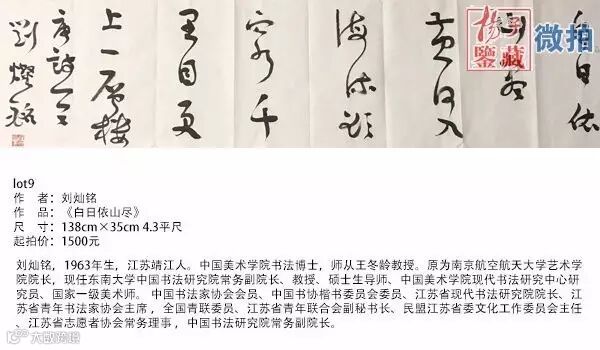 白日依
山尽
黄河入
海流欲
窮千
里目更
上一層樓
唐詩一首
劉燦銘
鑒藏
微拍
lot9
作 者：刘灿铭
作 品：《白日依山尽》
尺 寸：138cm×35cm 4.3平尺
起拍价：1500元
刘灿铭，1963年生，江苏靖江人。中国美术学院书法博士，师从王冬龄教授。原为南京航空航天大学艺术学
院院长，现任东南大学中国书法研究院常务副院长、教授、硕士生导师、中国美术学院现代书法研究中心研
究员、国家一级美术师。 中国书法家协会会员、中国书协楷书委员会委员、江苏省现代书法研究院院长、江
苏省青年书法家协会主席，全国青联委员、江苏省青年联合会副秘书长、民盟江苏省委文化工作委员会主任
、江苏省志愿者协会常务理事 ，中国书法研究院常务副院长。